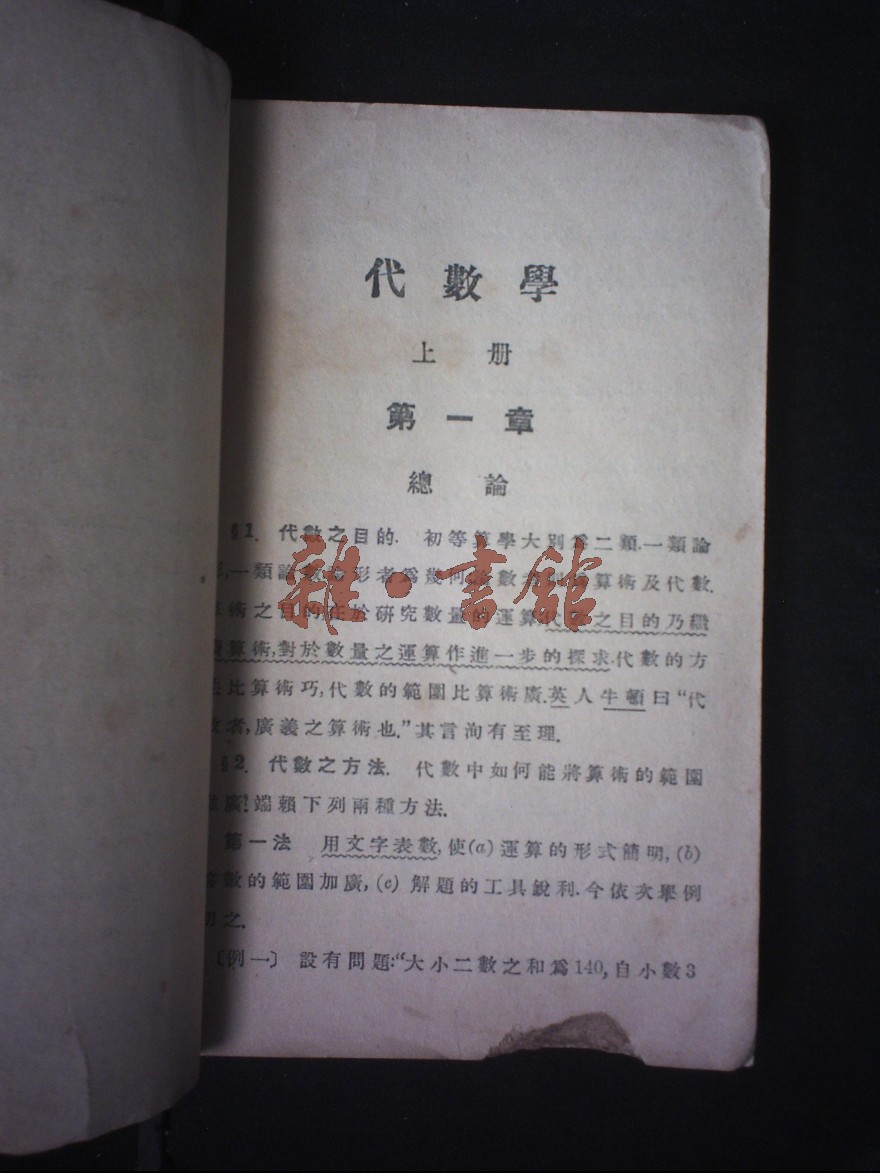 代數學
上册
第一章
總論
§1. 代數之目的. 初等算學大別爲二類.一類論
形,一類論數.論形者爲幾何,論數者爲算術及代數.
術之目的在於硏究數量的運算.代數之目的乃繼
算術,對於數量之運算作進一步的探求.代數的方
法比算術巧,代數的範圍比算術廣.英人牛頓曰“代
數者,廣義之算術也.”其言洵有至理.
§2. 代數之方法. 代數中如何能將算術的範圍
廣端賴下列兩種方法.
第一法 用文字表數,使(a)運算的形式簡明,(b)
數的範圍加廣,(c)解題的工具銳利.今依次舉例
明之.
〔例一〕 設有問題:“大小二數之和爲140,自小數3
雜·書館